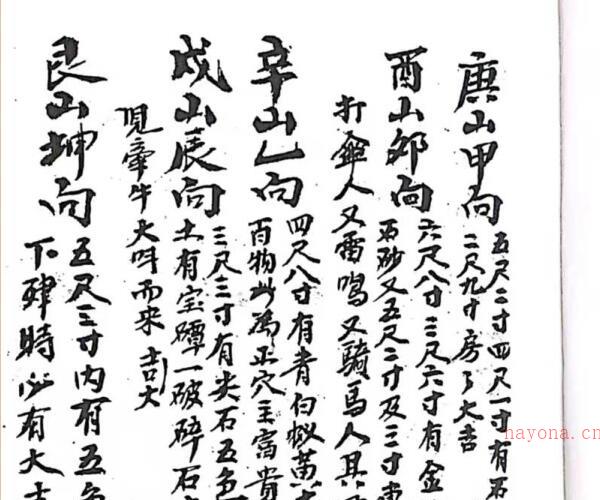 庚山甲向
五尺二寸四尺一寸有石
二尺九寸房了大吉
酉山卯向
六尺八寸三尺六寸有金
石砂又五尺二寸及三寸
打傘人又雷鳴又騎馬人其
辛山乙向
四尺八寸有青白蚁黄
百物此為正穴主富貴
戌山辰向
三尺三寸有尖石五色
土有宝磹一破碎石
見牽牛大呌而来 吉大
艮山坤向
五尺三寸內有五色
下肂時必有大
hayona.cn